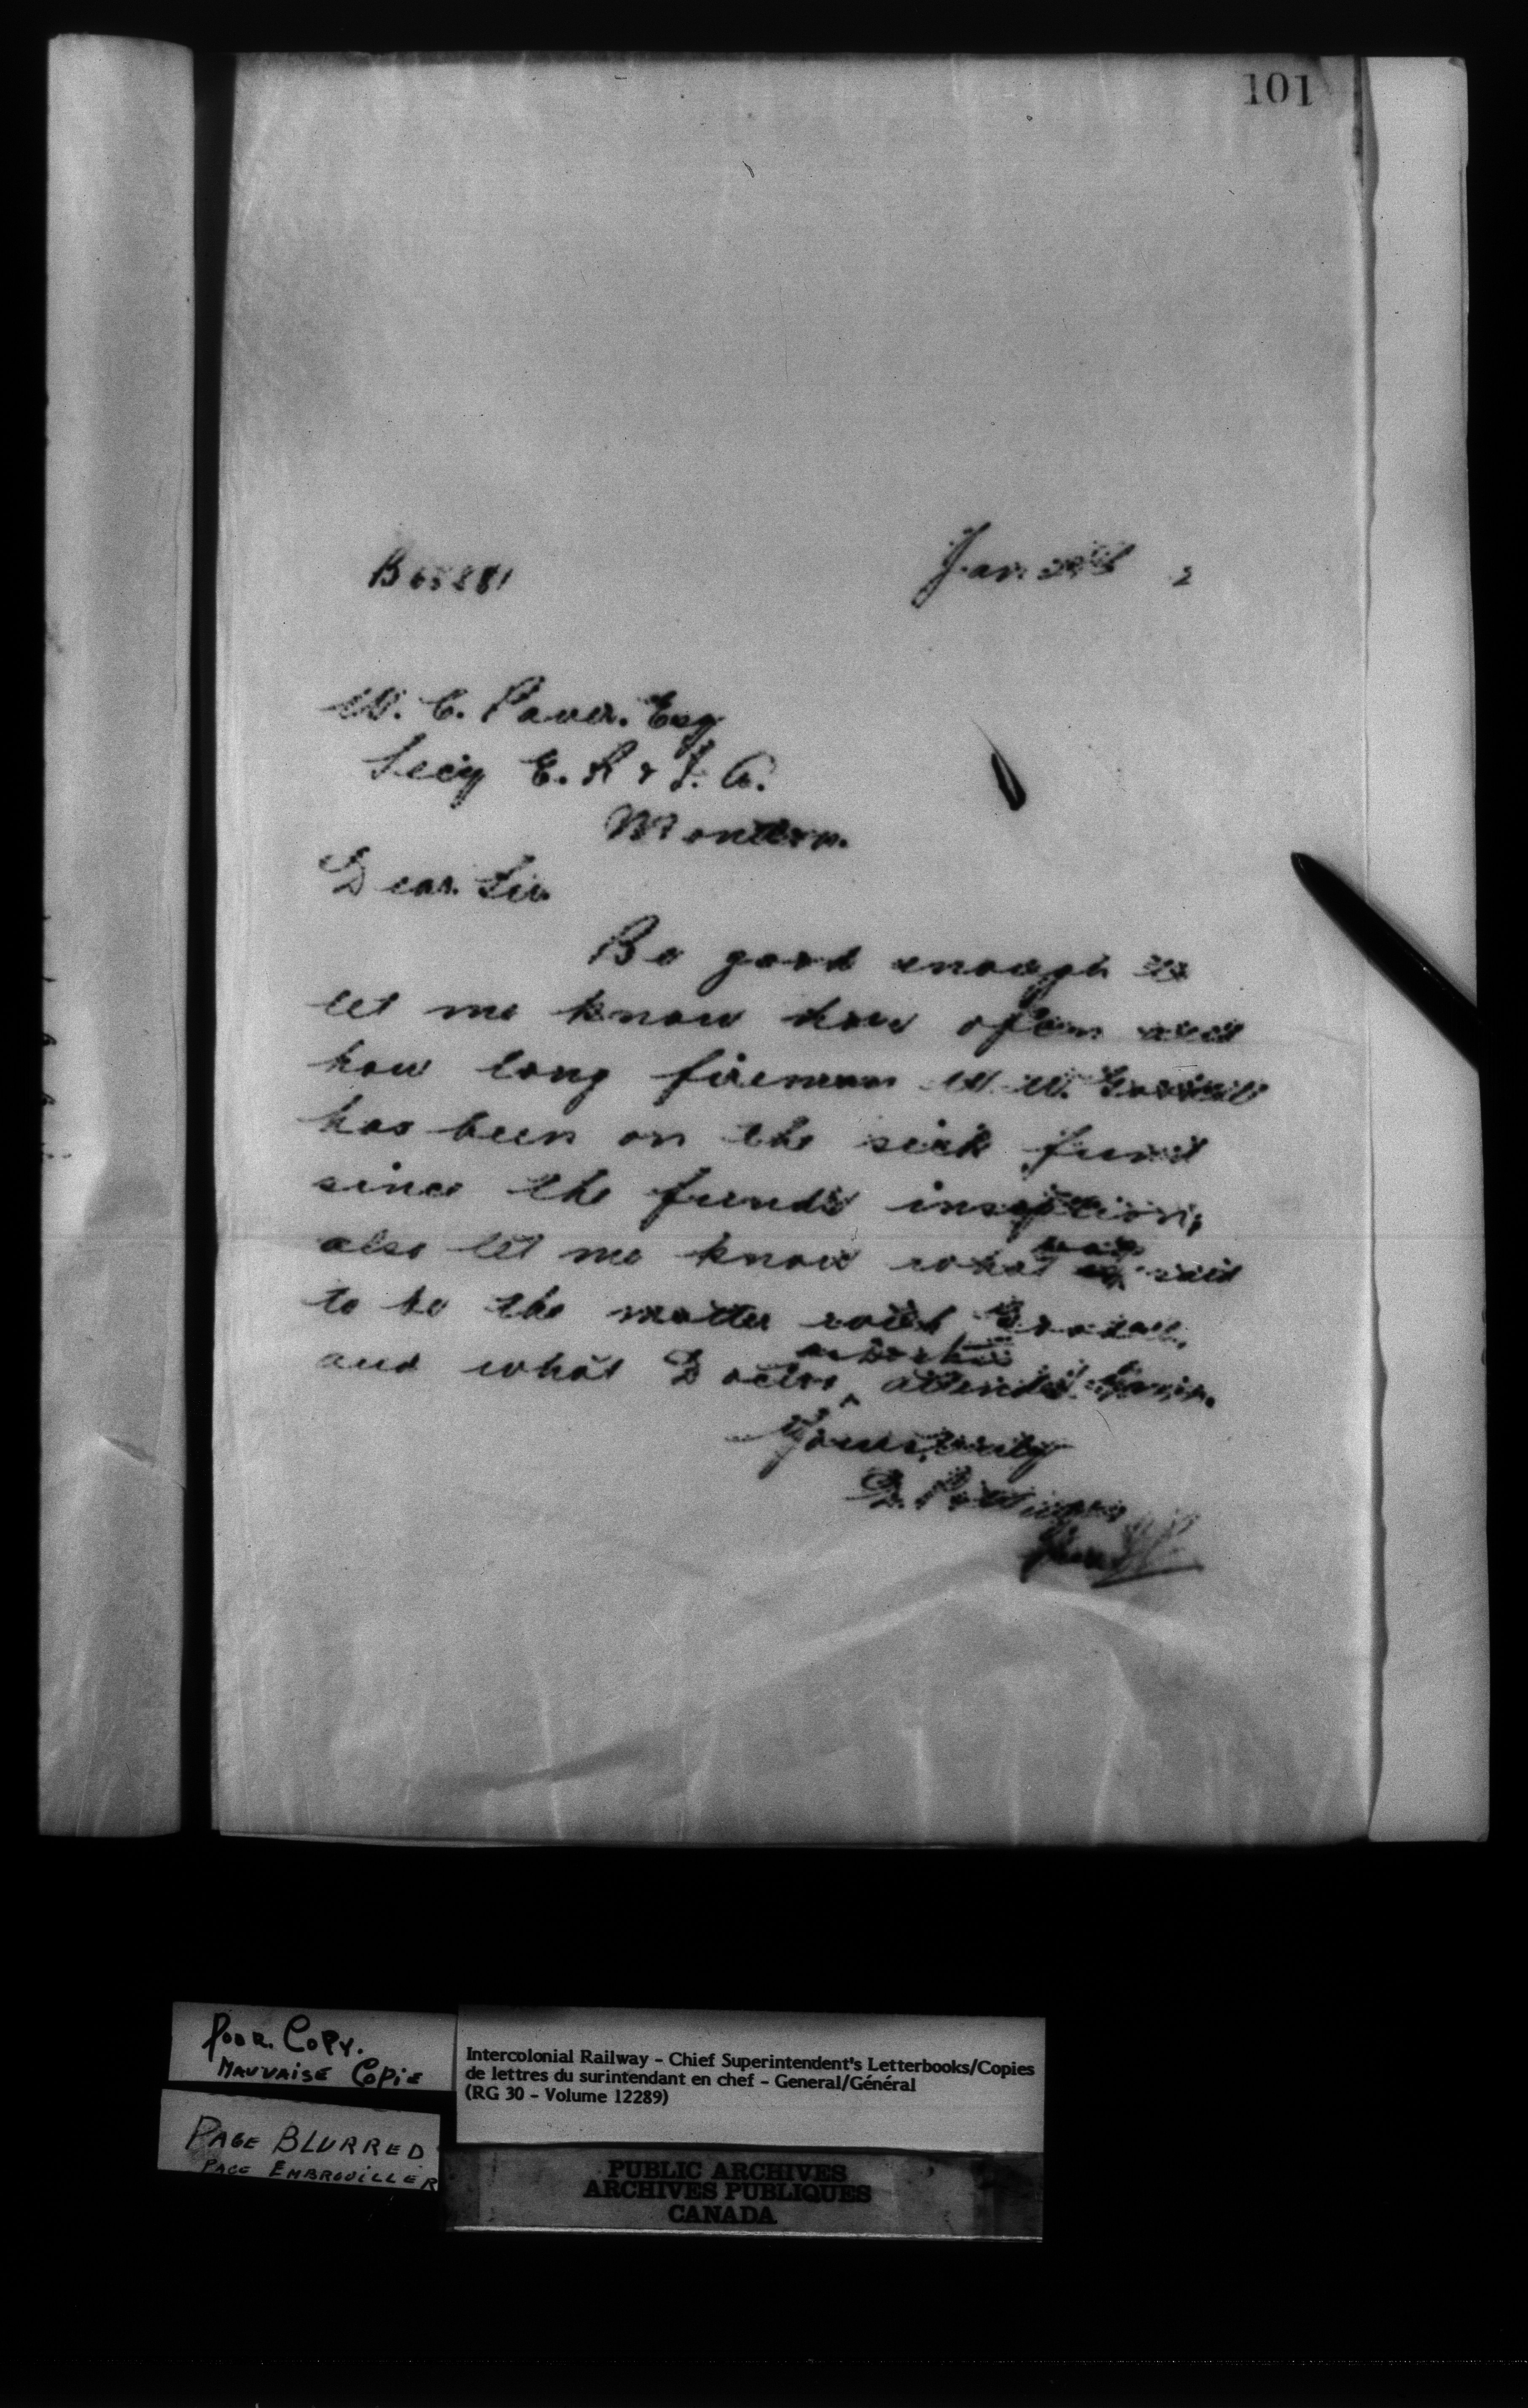 101
B 65881
Jan. 2
W. C. Paver. Esq
Secy E. R & I. A.
Moncton.
Dear. Sir.
Be good enough to
let me know how often and
how long fireman W. W.
has been on the sick fund
since the funds inception;
also let me know what was said
to be the matter with
and what Doctor attended him.
Yours truly
D. Pottinger
Poor. Copy.
Mauvaise Copie
Page Blurred
Page Embrouiller
Intercolonial Railway - Chief Superintendent's Letterbooks/Copies
de lettres du surintendant en chef - General/Général
(RG 30 - Volume 12289)
PUBLIC ARCHIVES
ARCHIVES PUBLIQUES
CANADA